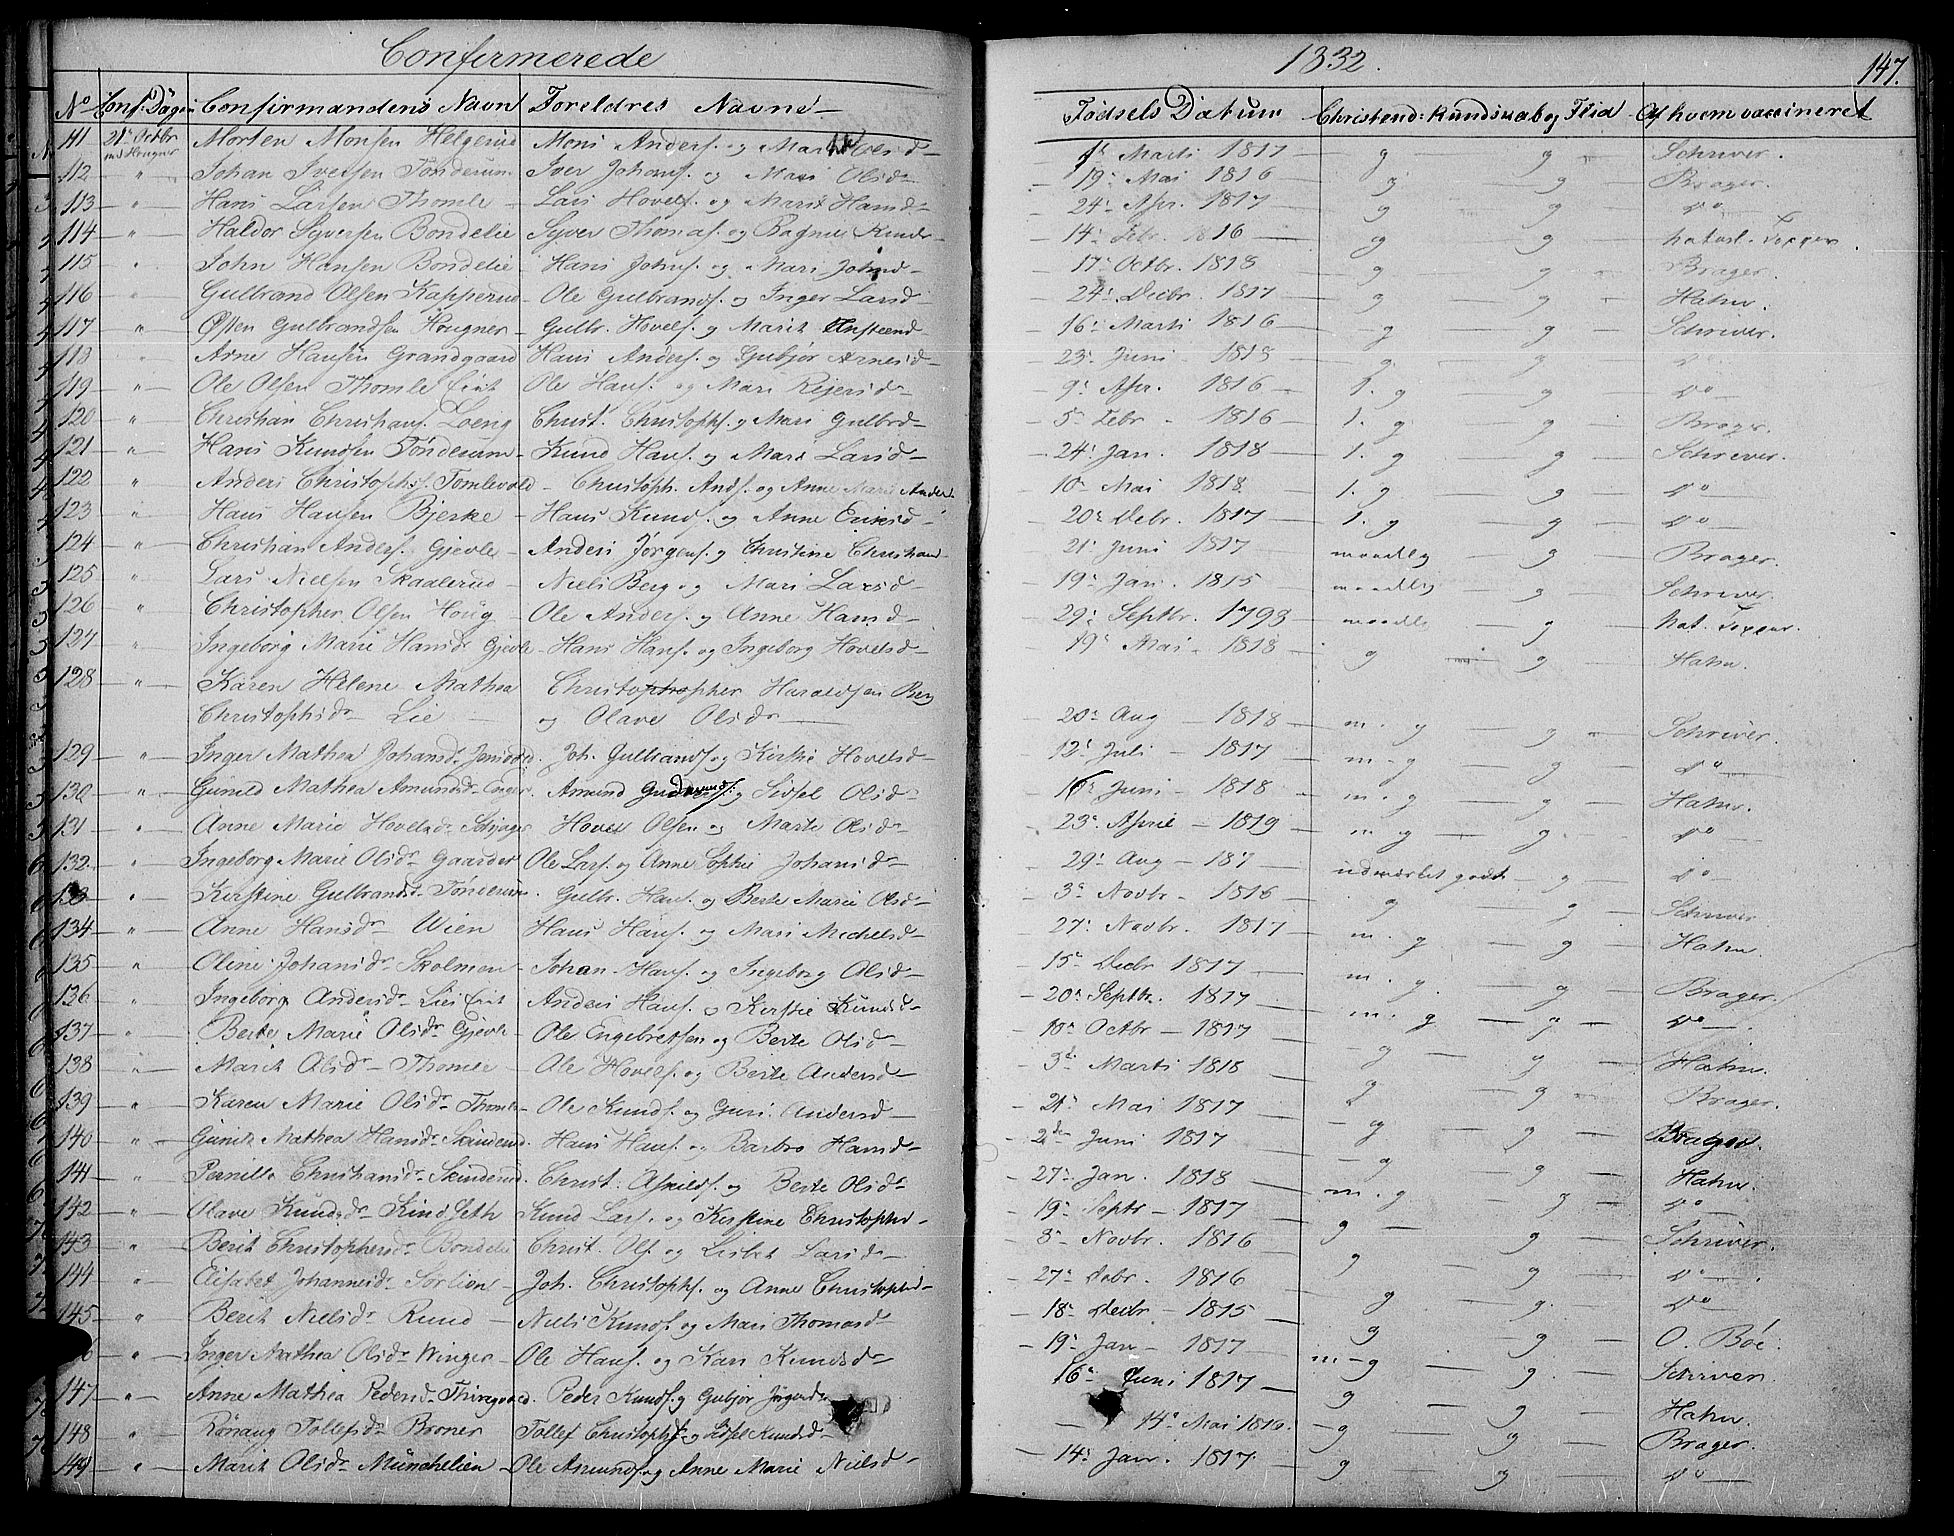 Confirmerede
1832.
147.
No Conf: Dagen Confirmandens Navn Foreldres Navne
Fødsels Datum Christend: kundskab og Flid Af hvem vaccineret
41 21de Octbr Morten Monsen Helgerud Mons Anders. og Marit Olsd 1ste Marti 1817 g g Schriver.
112 " Johan Iversen Tønderum Iver Johans. og Mari Olsdr 19de Mai 1816 g g Brager.
113 " Hans Larsen Thomle Lars Hovels. og Marit Hansd 24de Apr. 1817 g g do
114 " Haldor Syversen Bondelie Syver Thomas. og Ragnil Knudsd 14de Febr. 1816 g g
115 " John Hansen Bondelie Hans Johns. og Mari Johnsd 17de Octbr. 1818 g g Brager.
116 " Gulbrand Olsen Kapperud Ole Gulbrands. og Inger Larsd 24de Decbr. 1817 g g Hahn.
117 " Østen Gulbrandsen Hougner Gulbr. Hovels. og Marit 16de Marti 1816 g g Schriver.
118 " Arne Hansen Grandgaard Hans Anders. og Gubjør Arnesd 23de Juni 1818 g g do
119 " Ole Olsen Thomle Eiet Ole Hans. og Mari Reiersd 9de Apr. 1816 t. g g do
120 " Christian Christians. Loeng Christ. Christophs. og Mari Gulbrd 5te Febr 1816 t. g g Brager.
121 " Hans Knudsen Tønderum Knud Hans. og Mari Larsd 24de Jan. 1818 t. g g Schriver.
122 " Anders Christophs. Tomlevold Christoph. Ands. og Anne Marie Andersd 10de Mai 1818 t. g g do
123 " Hans Hansen Bjerke Hans Knuds. og Anne Eriksd 20de Decbr. 1817 t. g g do
124 " Christian Anders. Gjevle Anders Jørgens. og Christine Christiansd 21de Juni 1817 maadelig g Brager.
125 " Lars Nielsen Skaalerud Niels Berg og Mari Larsd 19de Jan. 1815 maadelig g Schriver
126 " Christopher Olsen Houg Ole Anders. og Anne Hansd 29de Septbr. 1793 maadelig g
127 " Ingeborg Marie Hansdr Gjevle Hans Hans. og Ingeborg Hovelsd 19de Mai 1818 g g Hahn.
128 " Karen Helene Mathea Christopher Haraldsen Berg
Christophsdr Lie og Olave Olsdr 20de Aug 1818 m. g g Schriver.
129 " Inger Mathea Johansdr Joh. Gulbrands. og Kirstie Hovelsd 12te Juli 1817 m. g g do
130 " Gunild Mathea Amundsdr Enger Amund Gudmunds. og Sidsel Olsdr 16de Juni 1818 m. g g Hahn.
131 " Anne Marie Hovelsdr Hovel Olsen og Marte Olsdr 23de April 1819 m. g g do
132 " Ingeborg Marie Olsdr Gaarder Ole Lars. og Anne Sophie Johansd 29de Aug 181 udmærket godt g do
133 " Kirstine Gulbrandsd Tønderum Gulbr. Hans. og Berte Marie Olsd 3de Novbr 1816 g g Schriver
134 " Anne Hansdr Wien Hans Hans. og Mari Michelsd 27de Novbr. 1817 m. g g Hahn.
135 " Oline Johansdr Skolmen Johan Hans. og Ingeborg Olsd 15de Decbr 1817 m. g g Brager.
136 " Ingeborg Andersdr Lies Eiet Anders Hans. og Kirstie Knudsd 20de Septbr. 1817 m. g g do
137 " Berte Marie Olsdr Gjevle Ole Engebretsen og Berte Olsd 10de Octbr 1817 g g Hahn.
138 " Marit Olsdr Thomle Ole Hovels. og Berte Andersd 3de Marti 1818 g g Brager.
139 " Karen Marie Olsdr Thomle Ole Knuds. og Guri Andersd 21de Mai 1817 g g Brager.
140 " Gunild Mathea Hansdr Skinderud Hans Hans. og Barbro Hansd 2den Juni 1817 g g Hahn.
141 " Pernille Christiansdr Skinderud Christ. Askilds. og Berte Olsdr 27de Jan 1818 m. g g do
142 " Olave Knudsdr Kindseth Knud Lars. og Kirstine Christophsd 19de Septr 1817 g g Schriver.
143 " Berit Christophersdr Bondelie Christ. Ols. og Lisbet Larsdr 3de Novbr. 1816 g g do
144 " Elisabet Johannesdr Sørlien Joh. Christophs. og Anne Christophsd 27de Decbr. 1816 g g do
145 " Berit Nielsdr Ruud Niels Knuds. og Mari Thomasdr 18de Decbr 1815 g g O. Bøe.
" Inger Mathea Olsdr Winger Ole Hans. og Kari Knudsdr 19de Jan 1817 m-g g Schriver
147 " Anne Mathea Pedersd Peder Knuds. og Gubjør Jørgensdr 16de Juni 1817 g g Hahn.
148 " Rønaug Tollefsdr Broner Tollef Christophs. og Sidsel Knudsd 14de Mai 1816. g g Brager.
149 " Marit Olsdr Münchelien Ole Asmunds. og Anne Marie Nielsd 14de Jan. 1817 g g do